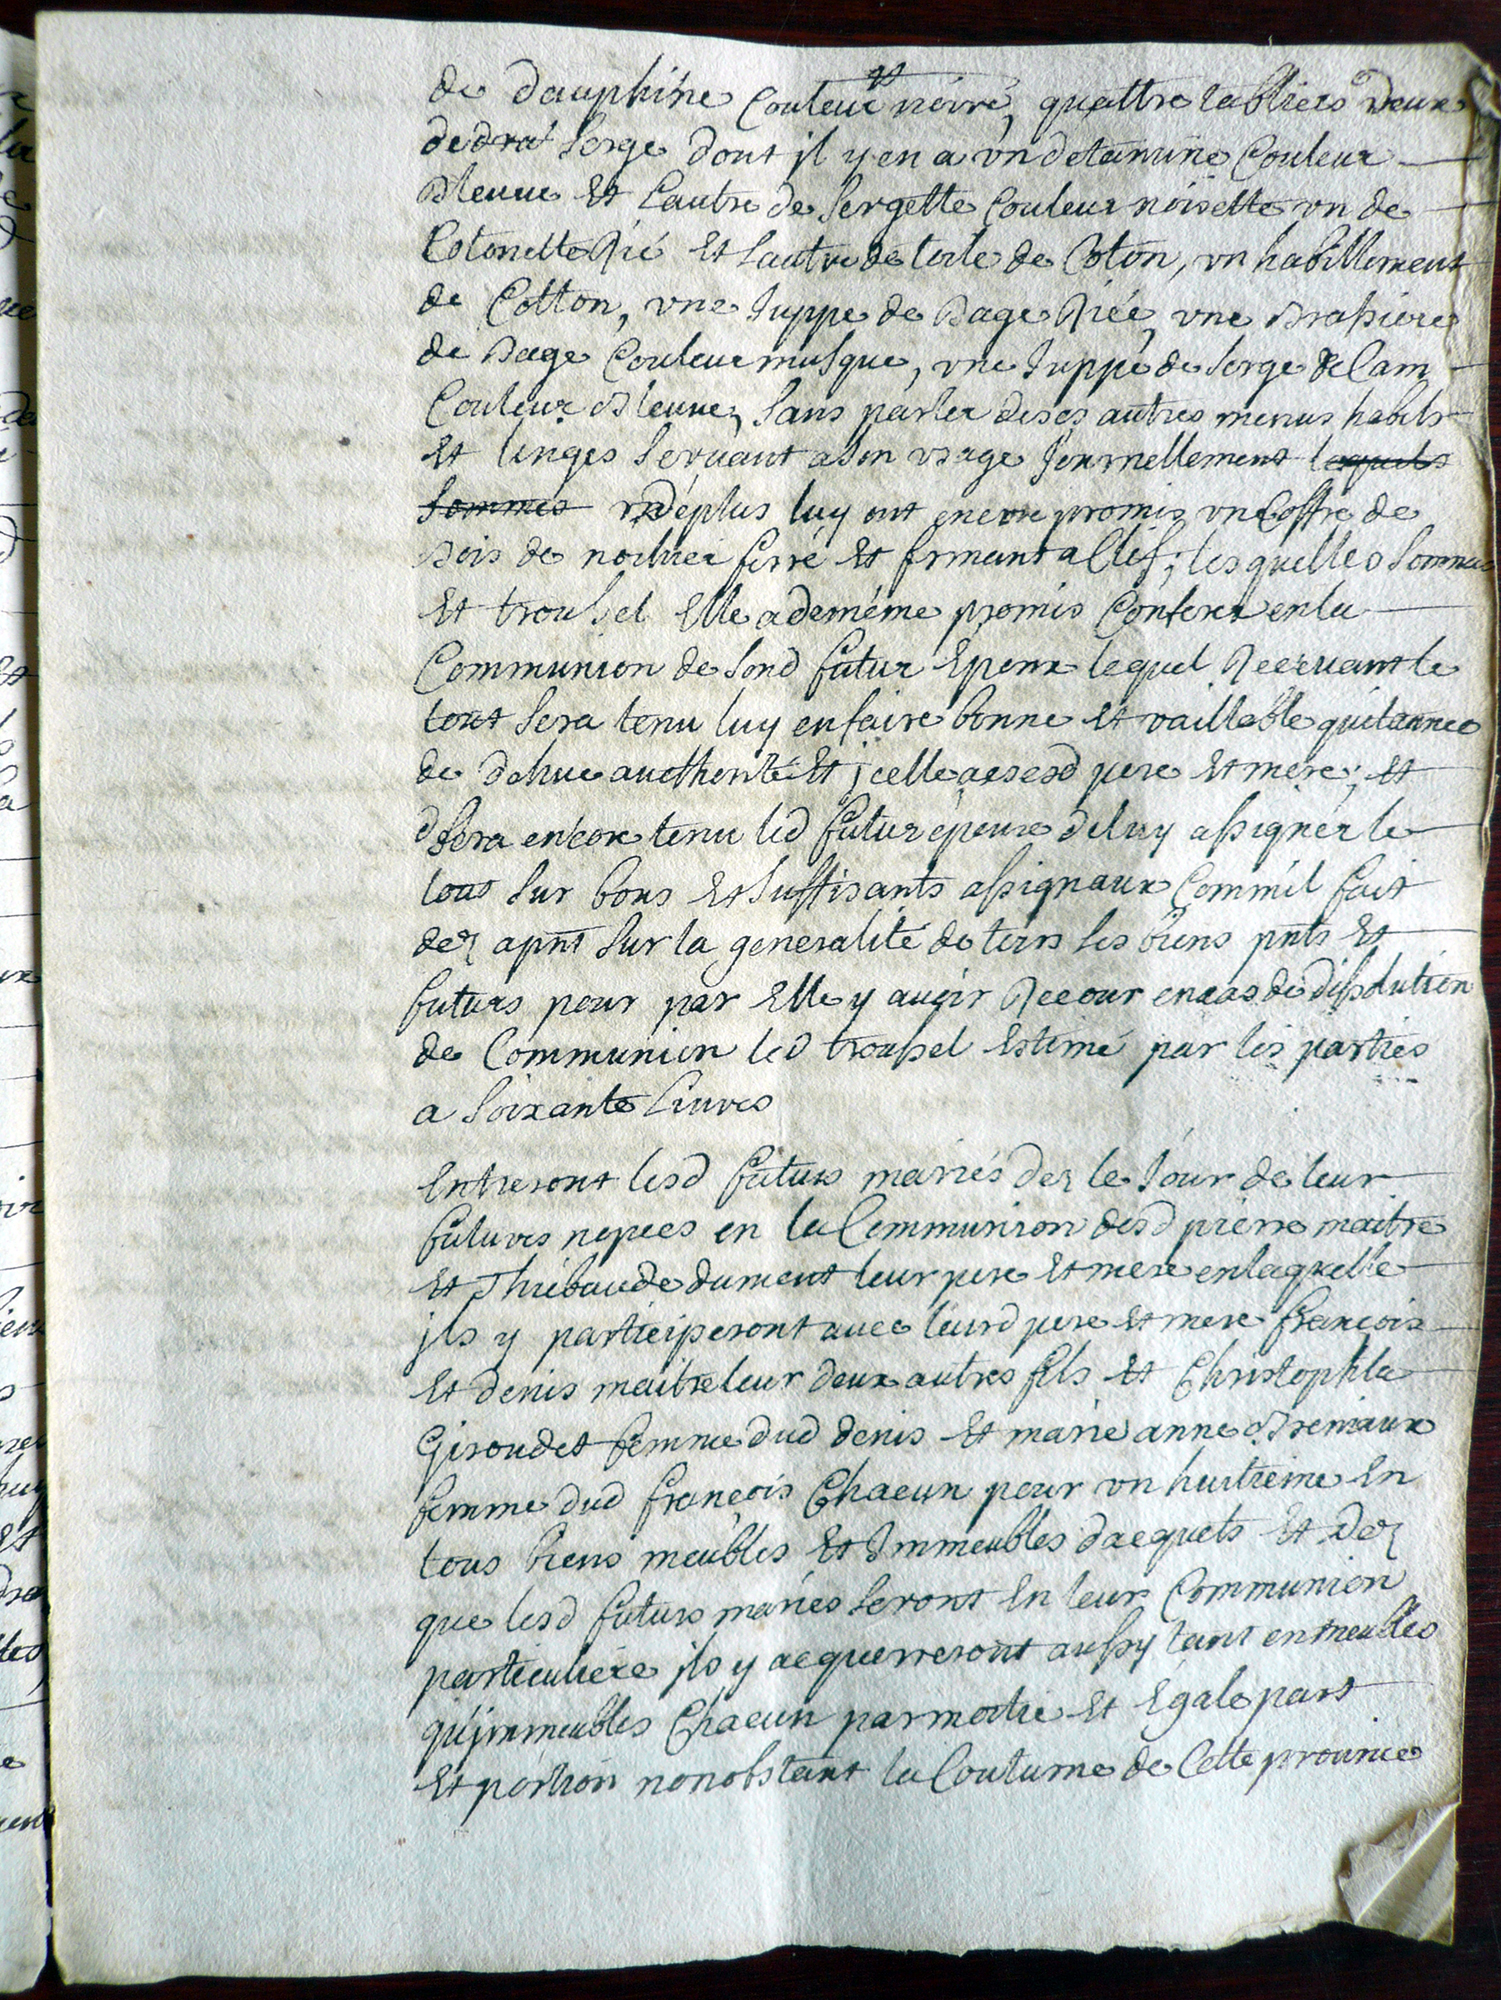 de dauphine Couleur noire, quattre tabliers deux
de Serge dont jl y en a vn detamine Couleur
Bleuue Et Lautre de Sergette Couleur noisette vn de
Cotonette Rié Et Lautre de toile de Coton, vn habillement
de Cotton, vne Juppe de Bage Riée, vne Brassiere
de Bage Couleur musque, vne Juppe de Serge de Cam
Couleur Bleuue, Sans parler de ses autres menus habits
Et linges Seruant a Son vsage Journellement lesquels
Sommes deplus luy ont encore promis vn Coffre de
Bois de noihier ferré Et fermant a Clef; lesquelles Sommes
Et troussel Elle a deméme promis Conferer en la
Communion de Sond futur Epoux lequel Receuant le
tout Sera tenu luy enfaire bonne Et vaillable quitance
de dehue aucthorité Et jcelle a sesd pere Et mere; Et
Sera encor tenu led futur epoux deluy assigner le
tout Sur bons Et Suffisants assignaux Comm'il fait
dez apnt Sur la generalité de tous Ses biens pnts Et
futurs pour par Elle y auoir Recour encas de dissolution
de Communion led troussel Estimé par les parties
a Soixante Liures
Entreront lesd futurs mariés dez le Jour de leur
futures nopces en la Communion desd pierre maitre
Et Thiebaude dument leur pere Et mere en laquelle
jls y participeront auec leurd pere Et mere francois
Et denis maitre leur deux autres fils Et Christophla
Giroudet femme dud denis Et marie anne Breniaux
femme dud francois Chacun pour vn huitieme En
tous biens meubles Et Jmmeubles dacquets Et Dez
que lesd futurs mariés Seront En leur Communion
particuliere jls y acquerreront aussy tant en meubles
qu'jmmeubles Chacun par moitie Et Egale part
Et portion nonobstant la Coutume de Cette prouince